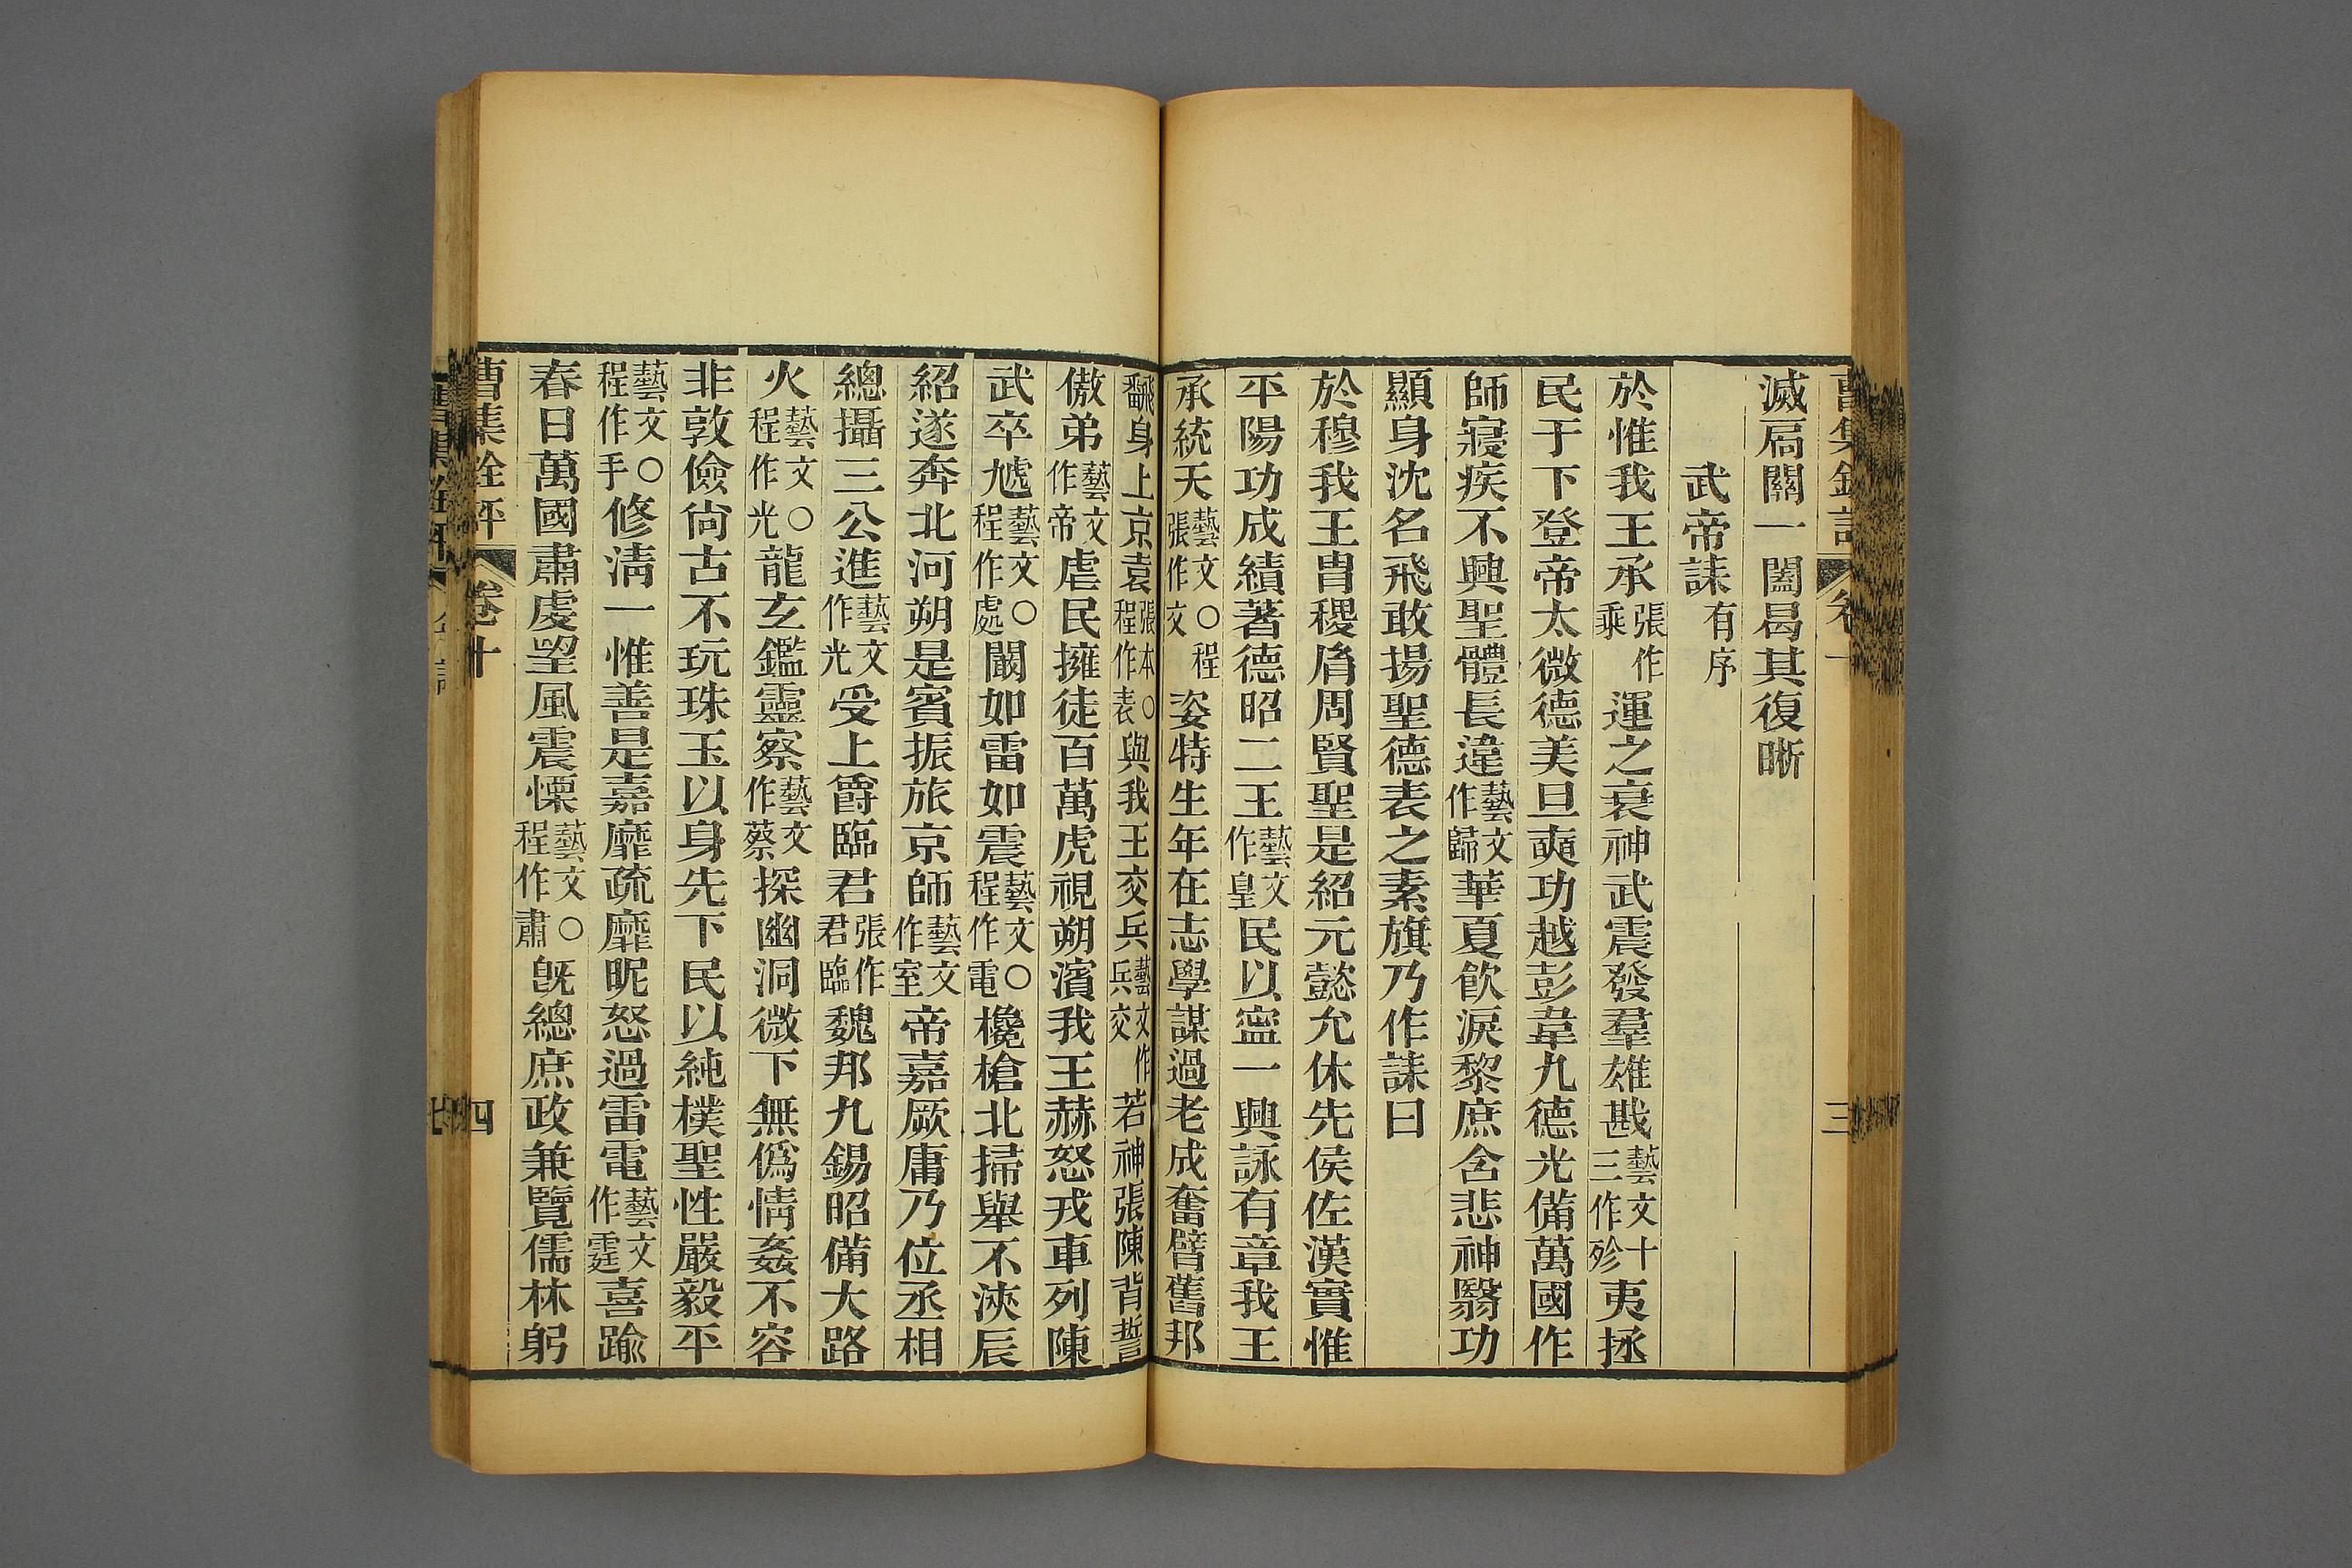 曹集銓評
卷十
三
滅扃關一闔曷其復晰
武帝誄有序
於惟我王承張作乘運之衰神武震發羣雄戡藝文十三作殄夷拯
民于下登帝太微德美旦奭功越彭韋九德光備萬國作
師寢疾不興聖體長違藝文作歸華夏飲淚黎庶含悲神翳功
顯身沈名飛敢揚聖德表之素旗乃作誄曰
於穆我王胄稷胤周賢聖是紹元懿允休先侯佐漢實惟
平陽功成績著德昭二王藝文作皇民以寍一興詠有章我王
承統天藝文○程張作交姿特生年在志學謀過老成奮臂舊邦
飜身上京袁張本○程作表與我王交兵藝文作兵交若神張陳背誓
傲弟藝文作帝虐民擁徒百萬虎視朔濱我王赫怒戎車列陳
武卒虓藝文○程作處闞如雷如震藝文○程作電欃槍北掃舉不浹辰
紹遂奔北河朔是賓振旅京師藝文作室帝嘉厥庸乃位丞相
總攝三公進藝文作光受上爵臨君張作君臨魏邦九錫昭備大路
火藝文○程作光龍玄鑑靈察藝文作蔡探幽洞微下無僞情姦不容
非敦儉尙古不玩珠玉以身先下民以純樸聖性嚴毅平
藝文○程作手修淸一惟善是嘉靡疏靡昵怒過雷電藝文作霆喜踰
春日萬國肅虔望風震慄藝文○程作肅旣總庶政兼覽儒林躬
曹集銓評
卷十
四